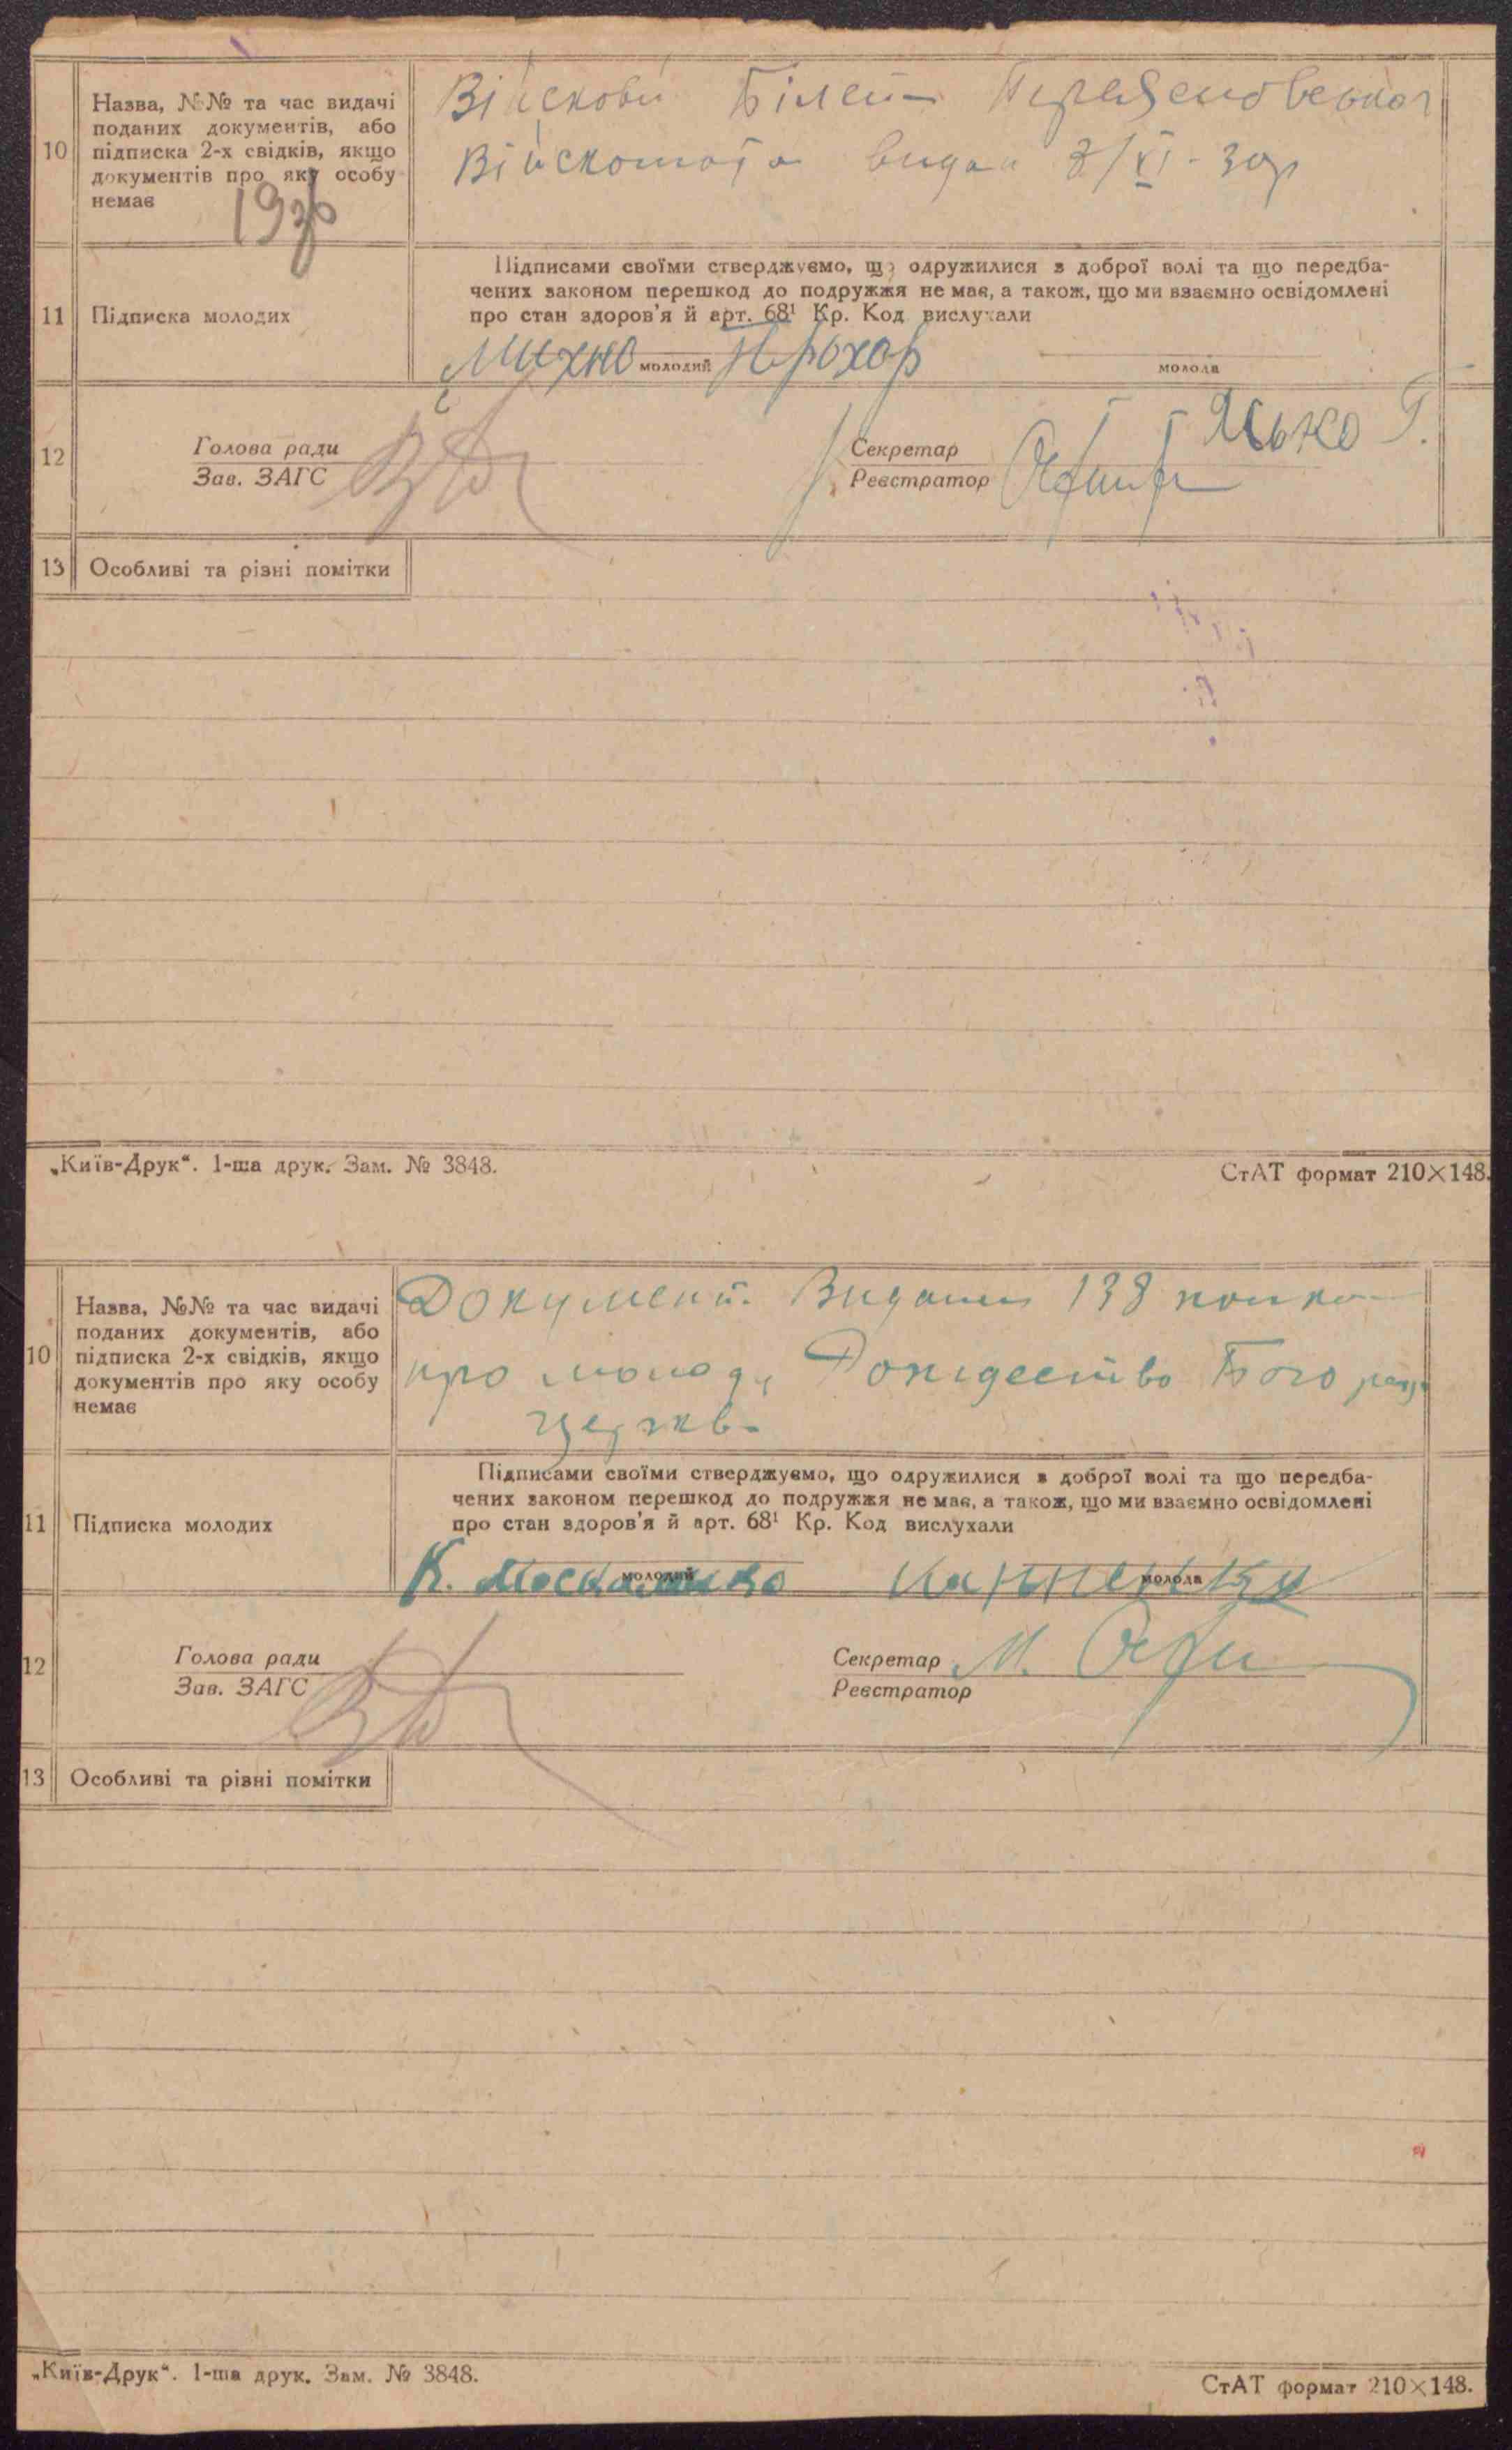 10 Назва, №№ та час видачі
поданих документів, або
підписка 2-х свідків, якщо
документів про яку особу
немає
193
Військови Білет
Військомата видан 3/XI-30р
11 Підписка молодих
Підписами своїми стверджуємо, що одружилися з доброї волі та що передба-
чених законом перешкод до подружжя не має, а також, що ми взаємно освідомлені
про стан здоров'я й арт. 68¹ Кр. Код вислухали
Михно молодий Прохор молода
Яько Г.
12 Голова ради Секретар
Зав. ЗАГС Реєстратор
13 Особливі та різні помітки
„Київ-Друк“. 1-ша друк. Зам. № 3848. СтАТ формат 210×148.
10 Назва, №№ та час видачі
поданих документів, або
підписка 2-х свідків, якщо
документів про яку особу
немає
Документ. Видани 138
про молоду Рождество Бого
церкв
11 Підписка молодих
Підписами своїми стверджуємо, що одружилися з доброї волі та що передба-
чених законом перешкод до подружжя не має, а також, що ми взаємно освідомлені
про стан здоров'я й арт. 68¹ Кр. Код вислухали
К. Москаленко молодий молода
12 Голова ради Секретар М.
Зав. ЗАГС Реєстратор
13 Особливі та різні помітки
„Київ-Друк“. 1-ша друк. Зам. № 3848. СтАТ формат 210×148.